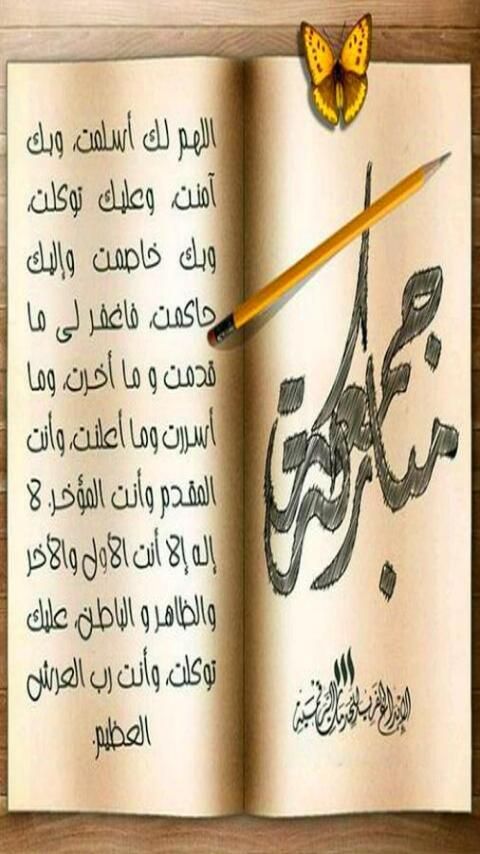 اللهم لك أسلمت، وبك
آمنت، وعليك توكلت،
وبك خاصمت وإليك
حاكمت، فاغفر لي ما
قدمت و ما أخرت، وما
أسررت وما أعلنت، وأنت
المقدم وأنت المؤخر. لا
إله إلا أنت الأول والآخر
والظاهر و الباطن، عليك
توكلت، وأنت رب العرش
العظيم.
جمعة
مباركة